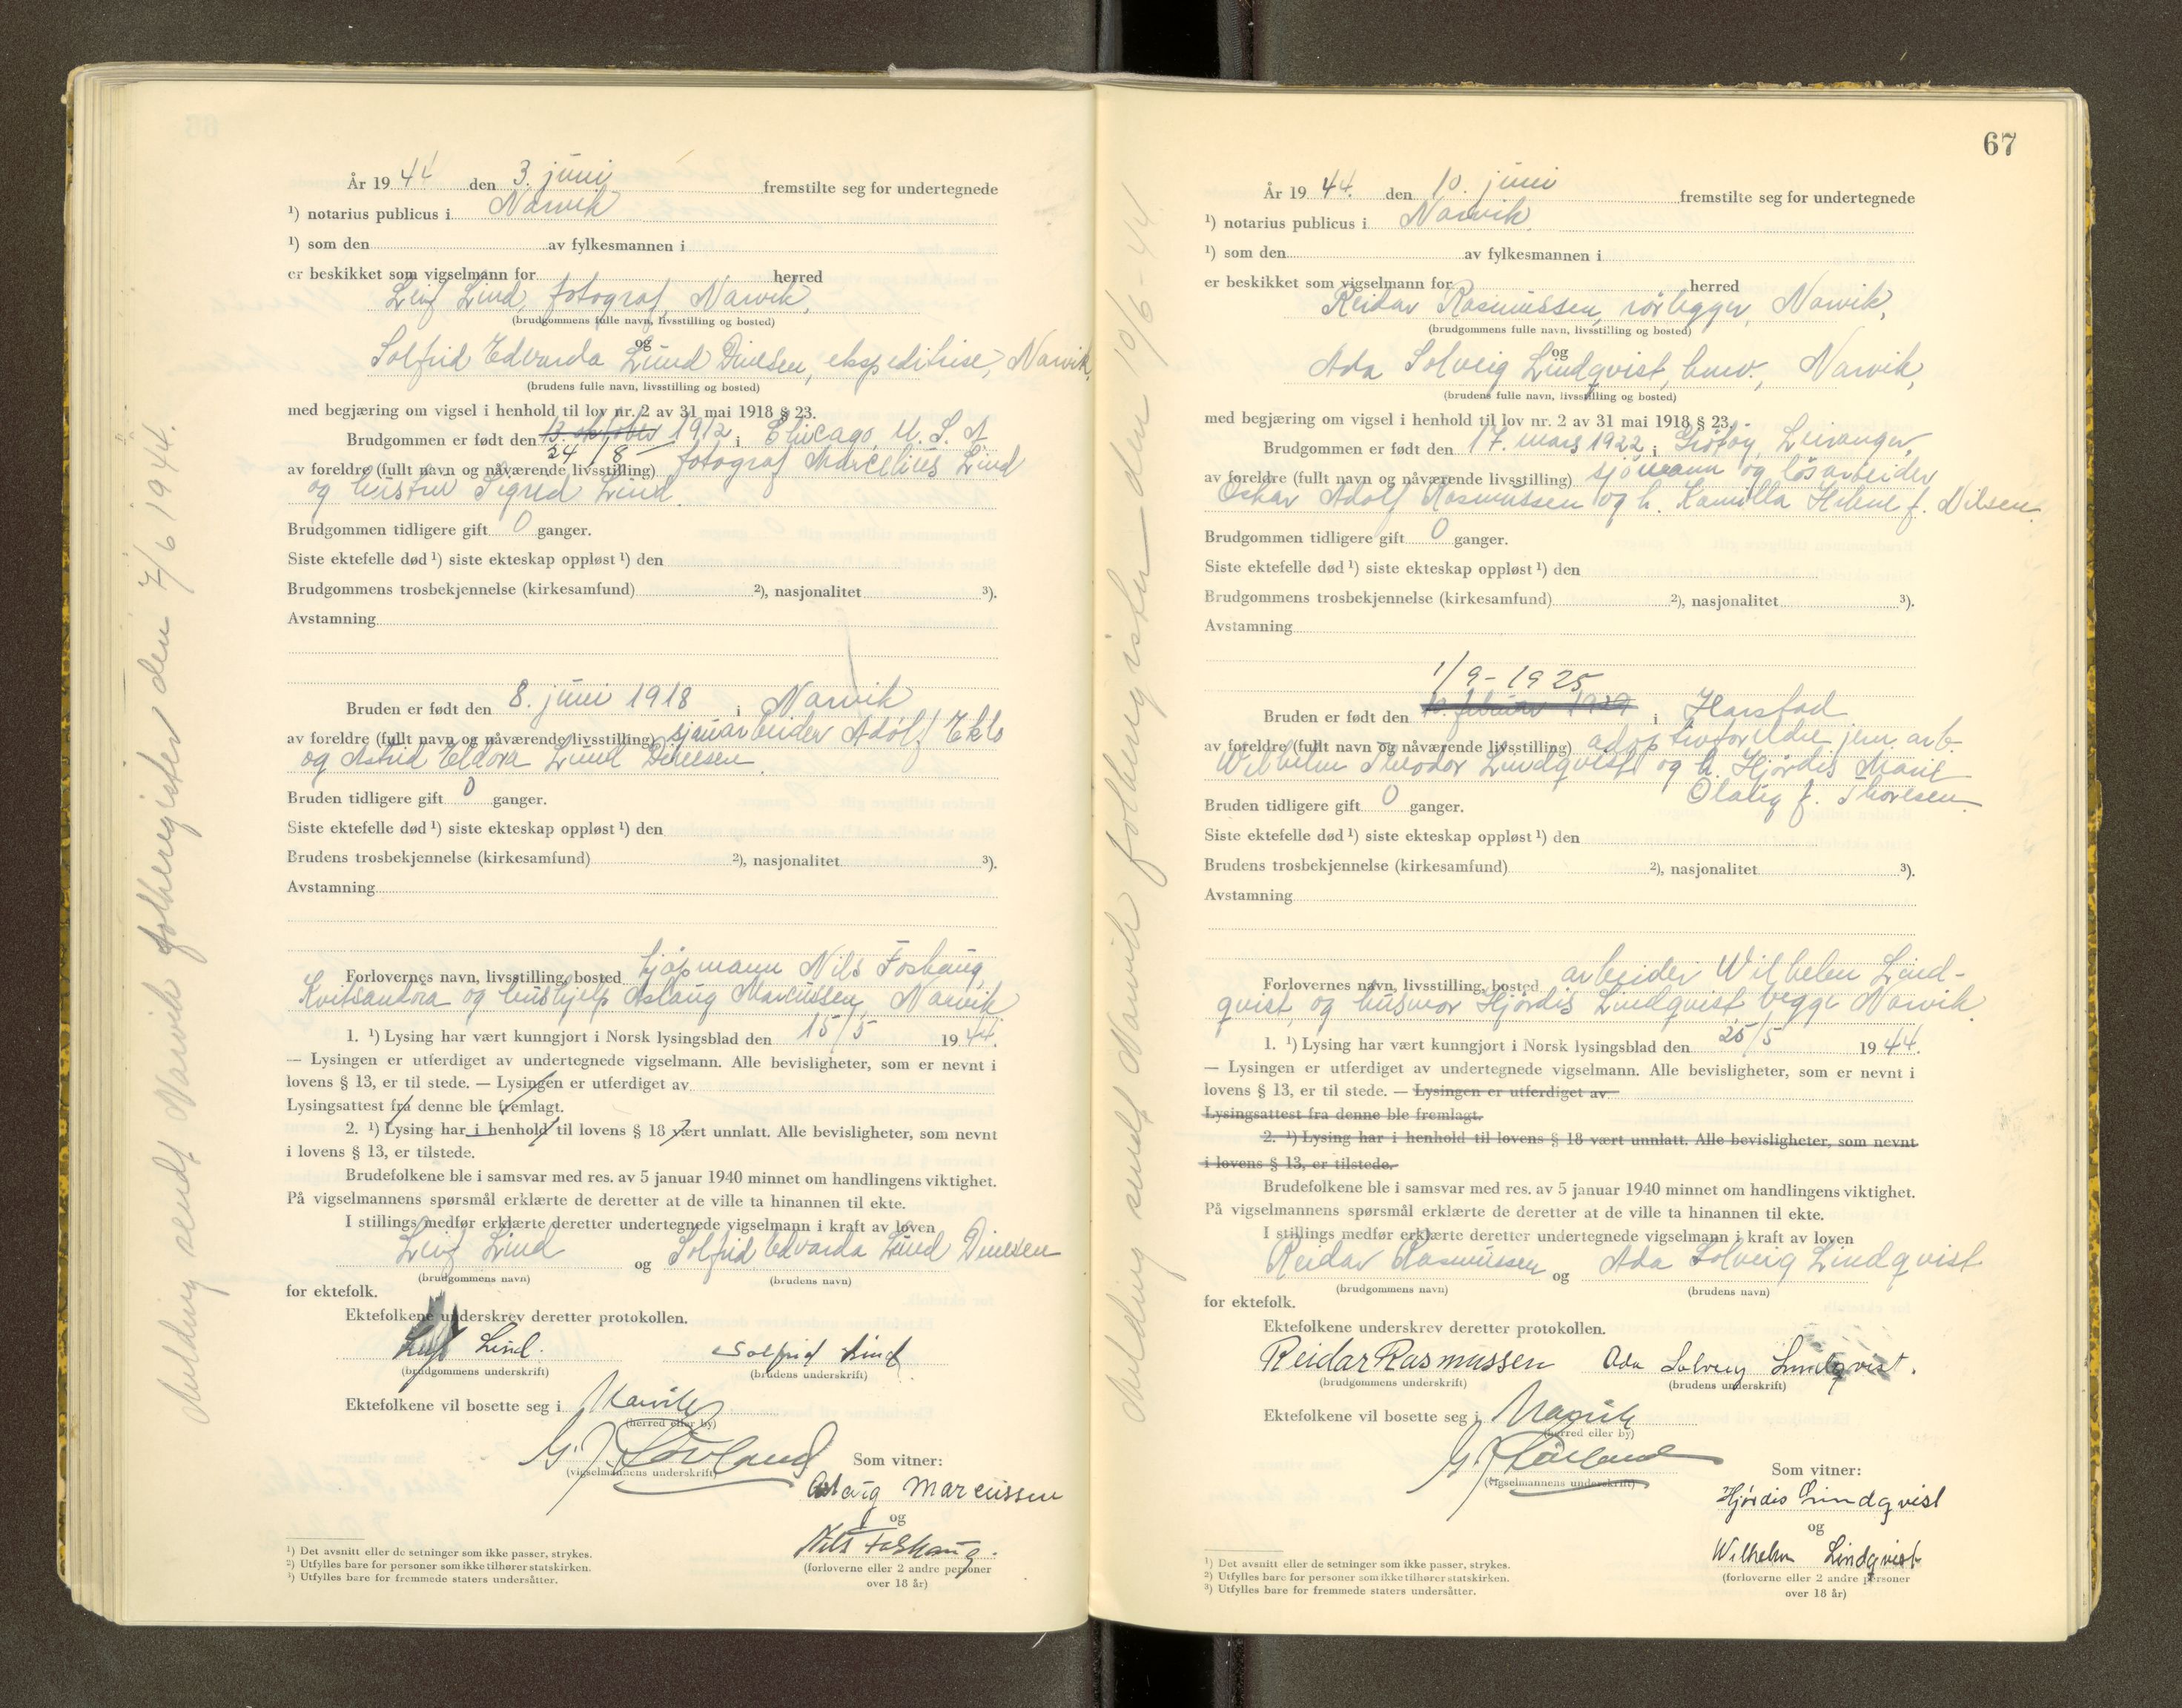 Melding sendt Narvik folkeregister den 7/6 1944.
År 1944 den 3. juni fremstilte seg for undertegnede
¹) notarius publicus i Narvik
¹) som den av fylkesmannen i
er beskikket som vigselmann for herred
Leif Lind, fotograf, Narvik,
(brudgommens fulle navn, livsstilling og bosted)
og
Solfrid Edvarda Lund Dinesen, ekspeditrise, Narvik,
(brudens fulle navn, livsstilling og bosted)
med begjæring om vigsel i henhold til lov nr. 2 av 31 mai 1918 § 23.
Brudgommen er født den 13. oktober 1912 i Chicago, U. S. A
24/8
av foreldre (fullt navn og nåværende livsstilling) fotograf Marcelius Lind
og hustru Sigrid Lind.
Brudgommen tidligere gift 0 ganger.
Siste ektefelle død ¹) siste ekteskap oppløst ¹) den
Brudgommens trosbekjennelse (kirkesamfund) ²), nasjonalitet ³).
Avstamning
Bruden er født den 8. juni 1918 i Narvik
av foreldre (fullt navn og nåværende livsstilling) sjauarbeider Adolf
og Astrid Eldora Lund Dinesen.
Bruden tidligere gift 0 ganger.
Siste ektefelle død ¹) siste ekteskap oppløst ¹) den
Brudens trosbekjennelse (kirkesamfund) ²), nasjonalitet ³).
Avstamning
Forlovernes navn, livsstilling, bosted kjøpmann Nils Foshaug,
Kvitsandøra og hushjelp Aslaug Marcussen, Narvik
1. ¹) Lysing har vært kunngjort i Norsk lysingsblad den 15/5 1944.
— Lysingen er utferdiget av undertegnede vigselmann. Alle bevisligheter, som er nevnt i
lovens § 13, er til stede. — Lysingen er utferdiget av
Lysingsattest fra denne ble fremlagt.
2. ¹) Lysing har i henhold til lovens § 18 vært unnlatt. Alle bevisligheter, som nevnt
i lovens § 13, er tilstede.
Brudefolkene ble i samsvar med res. av 5 januar 1940 minnet om handlingens viktighet.
På vigselmannens spørsmål erklærte de deretter at de ville ta hinannen til ekte.
I stillings medfør erklærte deretter undertegnede vigselmann i kraft av loven
Leif Lind og Solfrid Edvarda Lund Dinesen
(brudgommens navn) (brudens navn)
for ektefolk.
Ektefolkene underskrev deretter protokollen.
Leif Lind. Solfrid Lind
(brudgommens underskrift) (brudens underskrift)
Ektefolkene vil bosette seg i Narvik
(herred eller by)
(vigselmannens underskrift)
Som vitner:
Aslaug Marcussen
og
Nils Foshaug.
(forloverne eller 2 andre personer
over 18 år)
¹) Det avsnitt eller de setninger som ikke passer, strykes.
²) Utfylles bare for personer som ikke tilhører statskirken.
³) Utfylles bare for fremmede staters undersåtter.
67
Melding sendt Narvik folkeregister den 19/6-44
År 1944. den 10. juni fremstilte seg for undertegnede
¹) notarius publicus i Narvik.
¹) som den av fylkesmannen i
er beskikket som vigselmann for herred
Reidar Rasmussen, rørlegger, Narvik,
(brudgommens fulle navn, livsstilling og bosted)
og
Ada Solveig Lindqvist, hmv., Narvik,
(brudens fulle navn, livsstilling og bosted)
med begjæring om vigsel i henhold til lov nr. 2 av 31 mai 1918 § 23.
Brudgommen er født den 17. mars 1922 i Grøtøy, Leiranger,
av foreldre (fullt navn og nåværende livsstilling) sjømann og løsarbeider
Oskar Adolf Rasmussen og h. Kamilla Helene f. Nilsen.
Brudgommen tidligere gift 0 ganger.
Siste ektefelle død ¹) siste ekteskap oppløst ¹) den
Brudgommens trosbekjennelse (kirkesamfund) ²), nasjonalitet ³).
Avstamning
1/9-1925
Bruden er født den 10. februar 1929 i Harstad
av foreldre (fullt navn og nåværende livsstilling) adoptivforeldre jern.arb.
Wilhelm Theodor Lindqvist og h. Hjørdis Marie
Olaug f. Thoresen.
Bruden tidligere gift 0 ganger.
Siste ektefelle død ¹) siste ekteskap oppløst ¹) den
Brudens trosbekjennelse (kirkesamfund) ²), nasjonalitet ³).
Avstamning
Forlovernes navn, livsstilling, bosted arbeider Wilhelm Lind-
qvist, og husmor Hjørdis Lindqvist begge Narvik.
1. ¹) Lysing har vært kunngjort i Norsk lysingsblad den 25/5 1944.
— Lysingen er utferdiget av undertegnede vigselmann. Alle bevisligheter, som er nevnt i
lovens § 13, er til stede. — Lysingen er utferdiget av
Lysingsattest fra denne ble fremlagt.
2. ¹) Lysing har i henhold til lovens § 18 vært unnlatt. Alle bevisligheter, som nevnt
i lovens § 13, er tilstede.
Brudefolkene ble i samsvar med res. av 5 januar 1940 minnet om handlingens viktighet.
På vigselmannens spørsmål erklærte de deretter at de ville ta hinannen til ekte.
I stillings medfør erklærte deretter undertegnede vigselmann i kraft av loven
Reidar Rasmussen og Ada Solveig Lindqvist
(brudgommens navn) (brudens navn)
for ektefolk.
Ektefolkene underskrev deretter protokollen.
Reidar Rasmussen Ada Solveig Lindqvist.
(brudgommens underskrift) (brudens underskrift)
Ektefolkene vil bosette seg i Narvik
(herred eller by)
(vigselmannens underskrift)
Som vitner:
Hjørdis Lindqvist
og
Wilhelm Lindqvist
(forloverne eller 2 andre personer
over 18 år)
¹) Det avsnitt eller de setninger som ikke passer, strykes.
²) Utfylles bare for personer som ikke tilhører statskirken.
³) Utfylles bare for fremmede staters undersåtter.